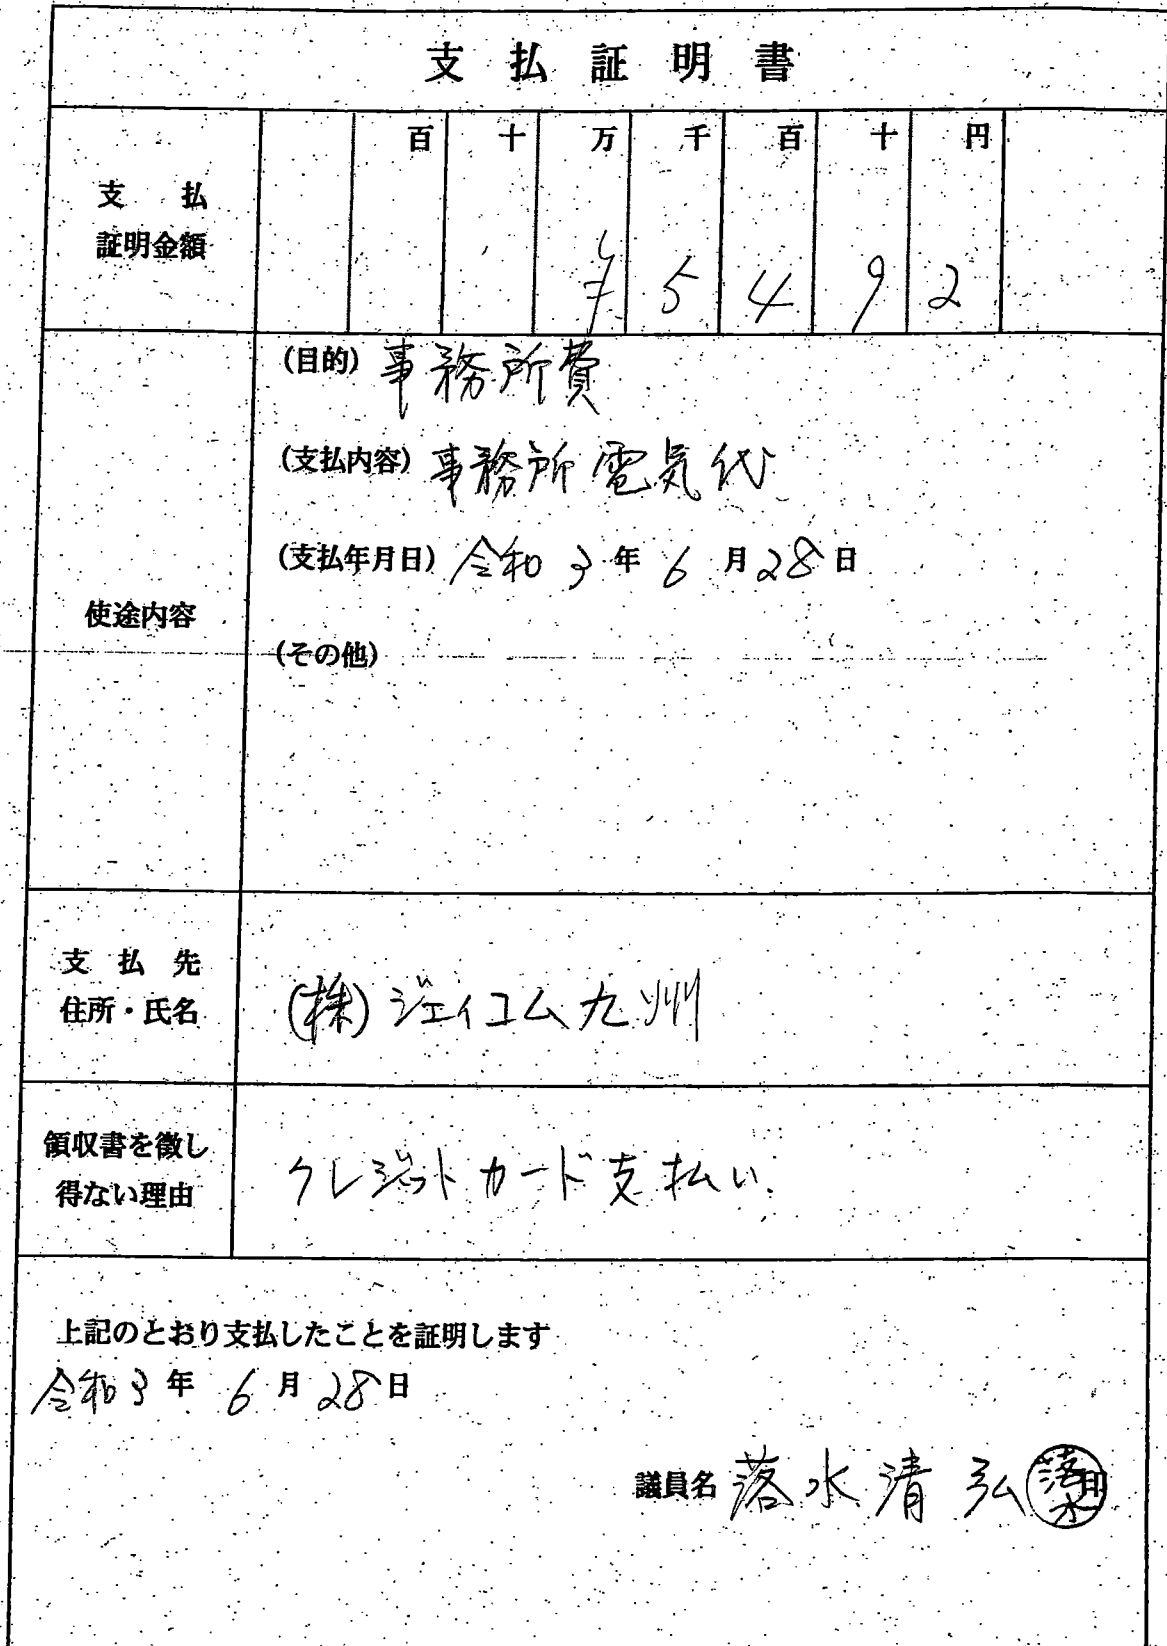 支払証明書
百 十 万 千 百 十 円
支払
証明金額
¥ 5 4 9 2
(目的) 事務所費
(支払内容) 事務所電気代
(支払年月日) 令和3年6月28日
使途内容
(その他)
支払先
住所・氏名
(株)ジェイコム九州
領収書を徴し
得ない理由
クレジットカード支払い.
上記のとおり支払したことを証明します
令和3年6月28日
議員名 落水清弘 印 落水